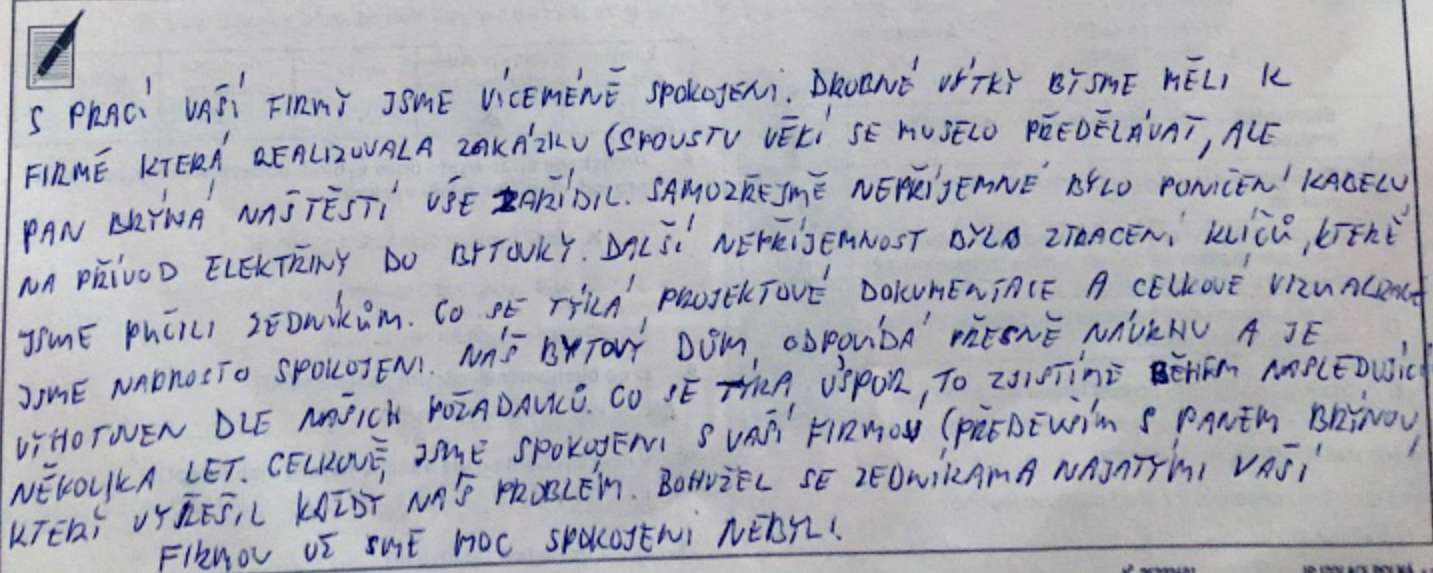 S PRACÍ VAŠÍ FIRMY JSME VÍCEMÉNĚ SPOKOJENI. DROBNÉ VÝTKY BYSME MĚLI K
FIRMĚ KTERÁ REALIZOVALA ZAKÁZKU (SPOUSTU VĚKÍ SE MUSELO PŘEDĚLÁVAT, ALE
PAN BRÝNA NAŠTĚSTÍ VŠE ZAŘÍDIL. SAMOZŘEJMĚ NEPŘÍJEMNÉ BYLO PONIČENÍ KABELU
NA PŘÍVOD ELEKTŘINY DO BYTOVKY. DALŠÍ NEPŘÍJEMNOST BYLO ZTRACENÍ KLÍČŮ, KTERÉ
JSME PŮČILI ZEDNÍKŮM. CO SE TÝKÁ PROJEKTOVÉ DOKUMENTACE A CELKOVÉ VIZUALIZACE
JSME NADMOSTO SPOKOJENI. NÁŠ BYTOVÝ DŮM ODPOVÍDÁ PŘESNĚ NÁVRHU A JE
VYHOTOVEN DLE NAŠICH POŽADAVKŮ. CO SE TÝKA ÚSPOR, TO ZJISTÍME BĚHEM NÁSLEDUJÍCÍ
NĚKOLIKA LET. CELKOVĚ JSME SPOKOJENI S VAŠÍ FIRMOU (PŘEDEVŠÍM S PANEM BRÝNOU,
KTERÝ VYŘEŠIL KAŽDÝ NÁŠ PROBLÉM. BOHUŽEL SE ZEDNÍKAMA NAJATÝMI VAŠÍ
FIRMOU UŽ SME MOC SPOKOJENI NEBYLI.